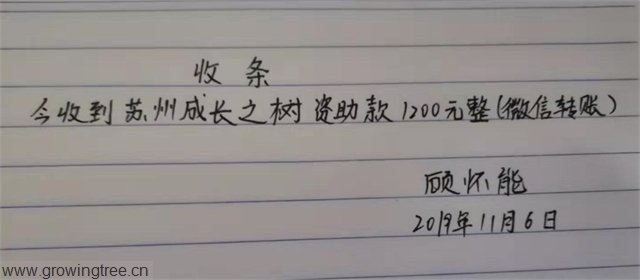 收条
今收到苏州成长之树资助款1200元整(微信转账)
顾怀能
2019年11月6日
www.growingtree.cn